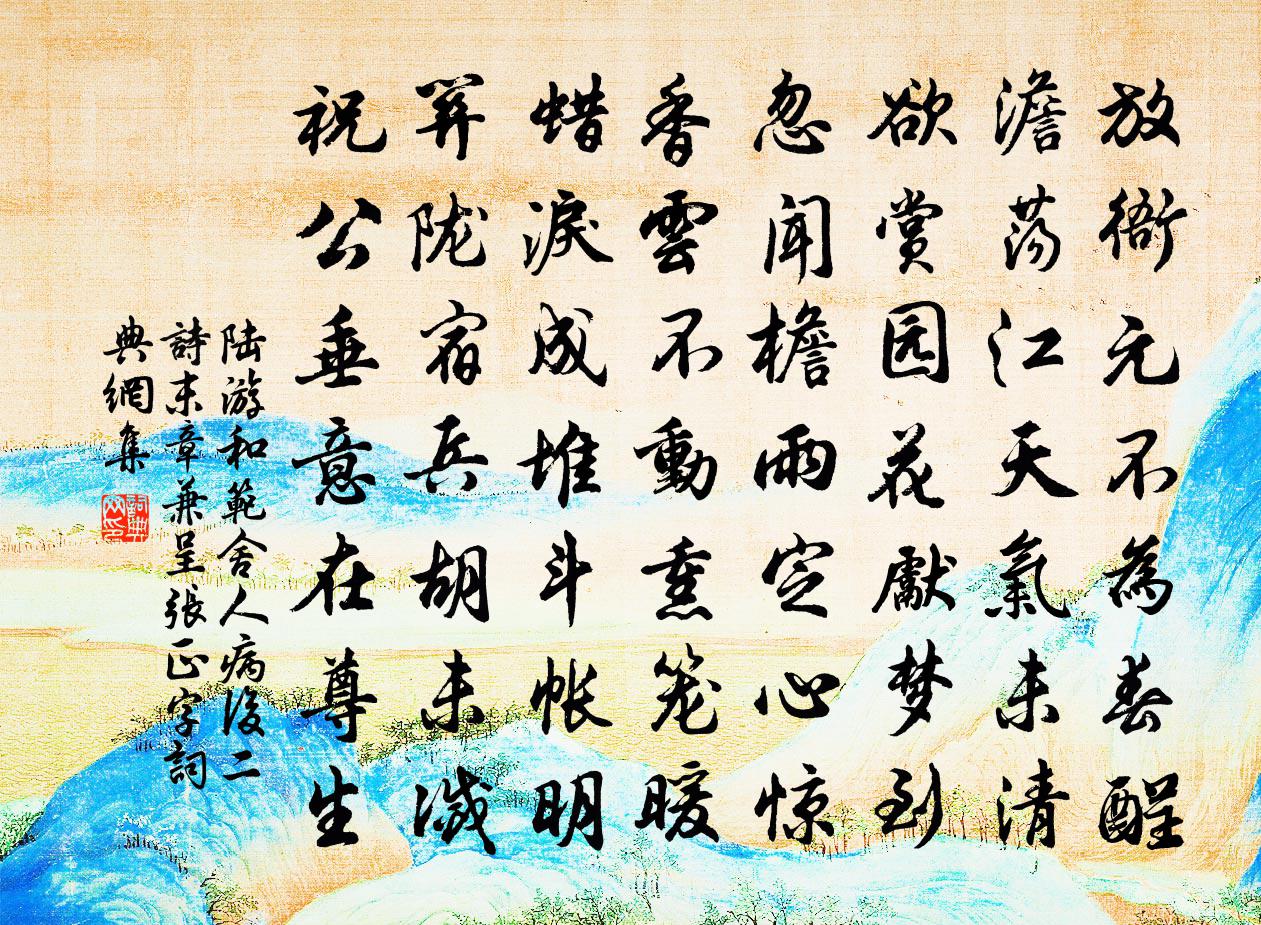 放衙元不為春酲
澹荡江天氣未清
欲赏园花獻梦到
忽闻檐雨定心惊
香雲不動熏笼暖
蜡淚成堆斗帐明
关陇宿兵胡未滅
祝公垂意在尊生
陆游和範舍人病後二
詩末章兼呈張正字詞
典網集